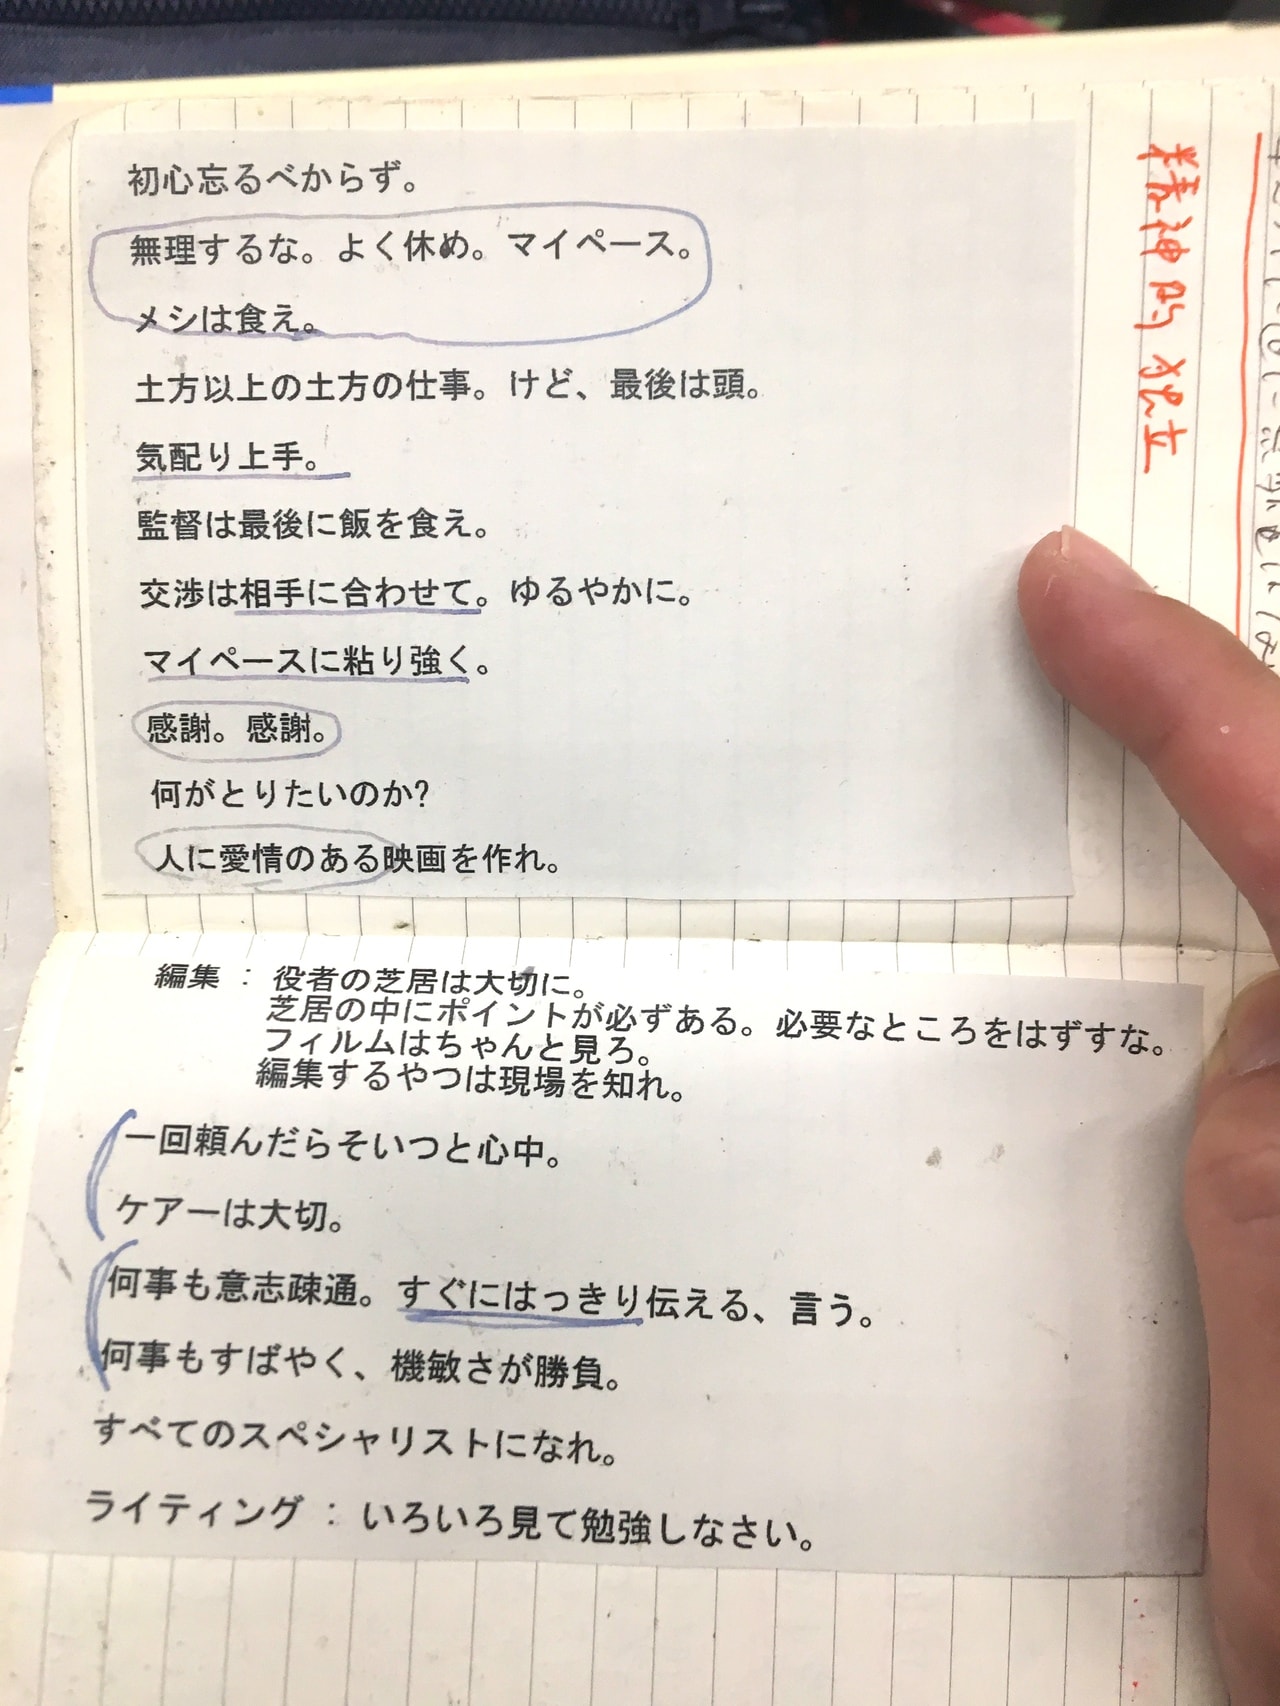 初心忘るべからず。
無理するな。よく休め。マイペース。
メシは食え。
土方以上の土方の仕事。けど、最後は頭。
気配り上手。
監督は最後に飯を食え。
交渉は相手に合わせて。ゆるやかに。
マイペースに粘り強く。
感謝。感謝。
何がとりたいのか?
人に愛情のある映画を作れ。
編集 : 役者の芝居は大切に。
芝居の中にポイントが必ずある。必要なところをはずすな。
フィルムはちゃんと見ろ。
編集するやつは現場を知れ。
一回頼んだらそいつと心中。
ケアーは大切。
何事も意志疎通。すぐにはっきり伝える、言う。
何事もすばやく、機敏さが勝負。
すべてのスペシャリストになれ。
ライティング : いろいろ見て勉強しなさい。
精神的独立